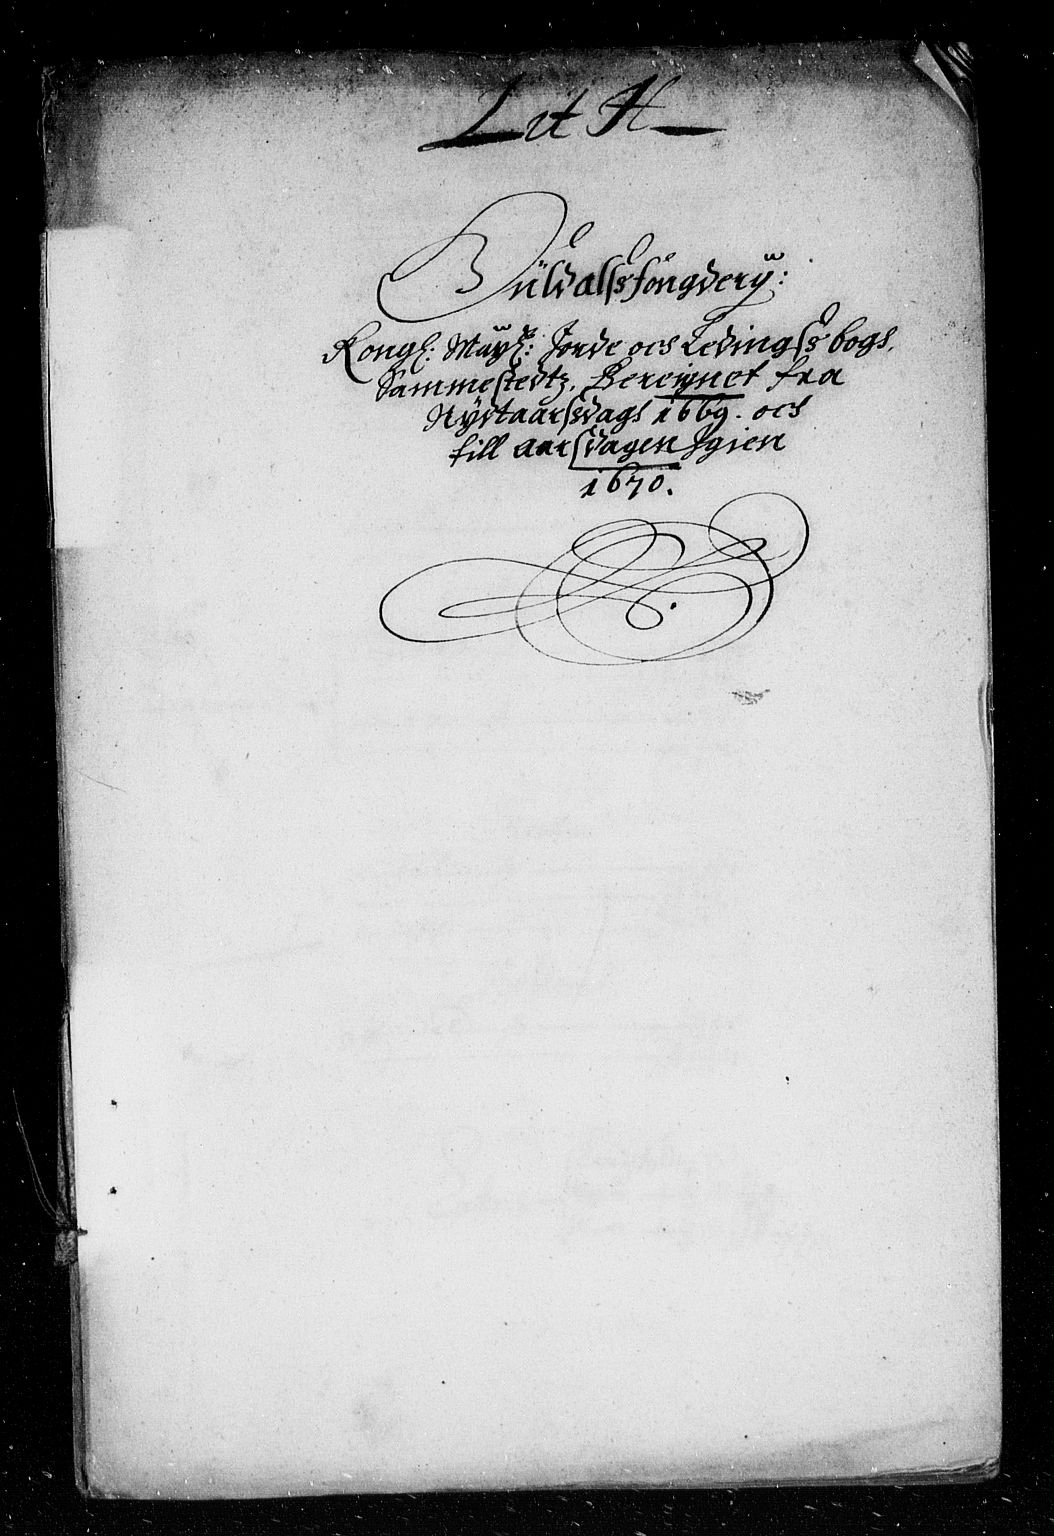 Lit H
Guldalss fougderÿ:
Kongl: Maÿtz: Jorde och Ledingss bogs,
Sammestedtz, Bereignet fra
Nydtaarssdags 1669. och
till aarssdagen Jgien
1670.